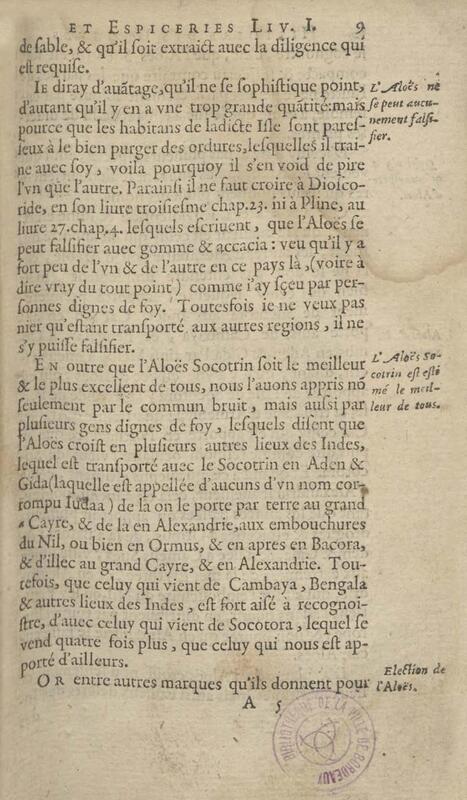 ET ESPICERIES LIV. I. 9
de sable, & qu'il soit extraict auec la diligence qui
est requise.
IE diray d'auãtage, qu'il ne se sophistique point,
d'autant qu'il y en a vne trop grande quãtité: mais
pource que les habitans de ladicte Isle sont pares-
seux à le bien purger des ordures, lesquelles il trai-
ne auec soy, voila pourquoy il s'en void de pire
l'vn que l'autre. Parainsi il ne faut croire à Diosco-
ride, en son liure troisiesme chap. 23. ni à Pline, au
liure 27. chap. 4. lesquels escriuent, que l'Aloës se
peut falsifier auec gomme & accacia: veu qu'il y a
fort peu de l'vn & de l'autre en ce pays là, (voire à
dire vray du tout point) comme i'ay sçeu par per-
sonnes dignes de foy. Toutesfois ie ne veux pas
nier qu'estant transporté aux autres regions, il ne
s'y puisse falsifier.
L'Aloës ne
se peut aucu-
nement falsi-
fier.
EN outre que l'Aloës Socotrin soit le meilleur
& le plus excellent de tous, nous l'auons appris nõ
seulement par le commun bruit, mais aussi par
plusieurs gens dignes de foy, lesquels disent que
l'Aloës croist en plusieurs autres lieux des Indes,
lequel est transporté auec le Socotrin en Aden &
Gida (laquelle est appellée d'aucuns d'vn nom cor-
rompu Iudaa) de là on le porte par terre au grand
Cayre, & de la en Alexandrie, aux embouchures
du Nil, ou bien en Ormus, & en apres en Bacora,
& d'illec au grand Cayre, & en Alexandrie. Tou-
tefois, que celuy qui vient de Cambaya, Bengala
& autres lieux des Indes, est fort aisé à recognoi-
stre, d'auec celuy qui vient de Socotora, lequel se
vend quatre fois plus, que celuy qui nous est ap-
porté d'ailleurs.
L'Aloës So-
cotrin est esti
mé le meil-
leur de tous.
OR entre autres marques qu'ils donnent pour
Election de
l'Aloës.
A 5
BIBLIOTHEQUE DE LA VILLE DE BORDEAUX